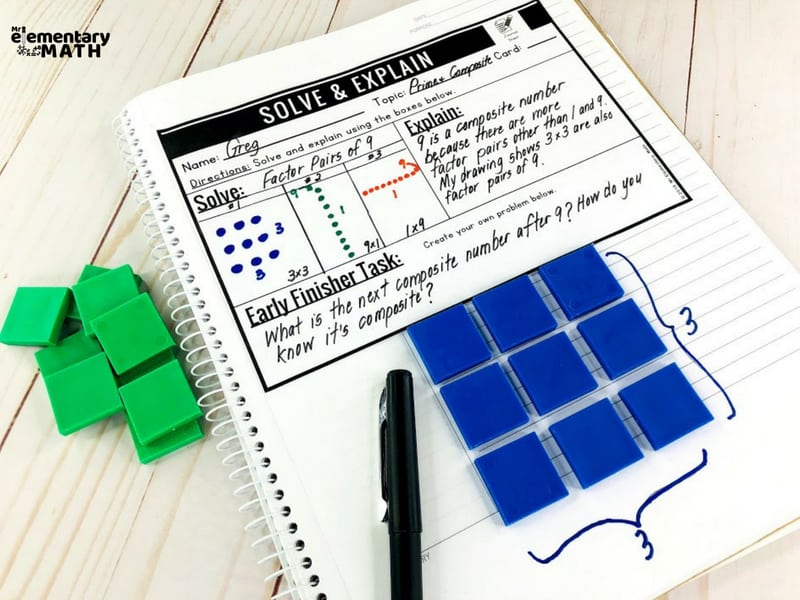 Mr Elementary
MATH
DATE
PURPOSE
SOLVE & EXPLAIN
Name: Greg
Topic: Prime & Composite Card:
Directions: Solve and explain using the boxes below.
Solve: Factor Pairs of 9
#1
3
3
3x3
#2
9
1
9x1
#3
9
1
1x9
Explain:
9 is a composite number
because there are more
factor pairs other than 1 and 9.
My drawing shows 3x3 are also
factor pairs of 9.
Early Finisher Task: Create your own problem below.
What is the next composite number after 9? How do you
know it's composite?
3
3